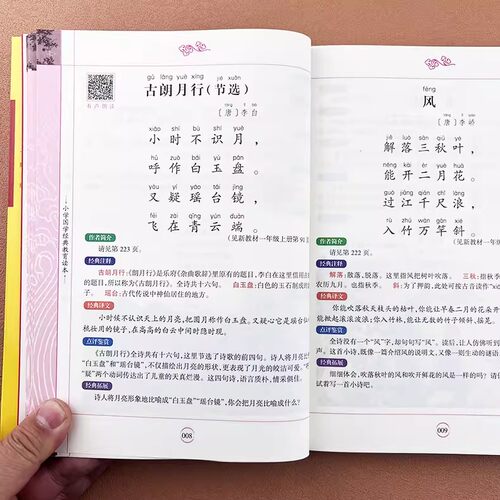 小学国学经典教育读本
有声朗读
gǔ lǎng yuè xíng jié xuǎn
古朗月行(节选)
táng lǐ bái
[唐]李白
xiǎo shí bù shí yuè
小时不识月，
hū zuò bái yù pán
呼作白玉盘。
yòu yí yáo tái jìng
又疑瑶台镜，
fēi zài qīng yún duān
飞在青云端。
(见新教材一年级上册第
作者简介
请见第 223 页。
经典注释
古朗月行:《朗月行》是乐府《杂曲歌辞》里原有的题目,李白在这里借用
的题目,所以称为《古朗月行》。全诗共十六句。 白玉盘:白色的玉石制成
盘。 瑶台:古代传说中神仙居住的地方。
经典译文
小时候不认识天上的月亮,把圆月称作白玉盘。又疑心它是瑶台仙
梳妆用的镜子,在高高的白云中间时隐时现。
点评鉴赏
《古朗月行》全诗共有十六句,这里节选了诗歌的前四句。诗人将月亮比
“白玉盘”和“瑶台镜”,不仅描绘出月亮的形状,更表现了月光的皎洁可爱。
疑”两个动词传达出了儿童的天真烂漫。这四句诗,语言质朴,情采俱佳。
经典拓展
诗人将月亮形象地比喻成“白玉盘”“瑶台镜”,你会把月亮比喻成什么?
008
fēng
风
táng lǐ qiáo
[唐]李峤
jiě luò sān qiū yè
解落三秋叶，
néng kāi èr yuè huā
能开二月花。
guò jiāng qiān chǐ làng
过江千尺浪，
rù zhú wàn gān xié
入竹万竿斜。
(见新教材一年级
作者简介
请见第 222 页。
经典注释
解落:散落,脱落。这里指风把树叶吹落。 三秋:指秋季
农历九月。也指秋季。 斜:为了押韵,此处可按古音读作“xiá
经典译文
你能吹落秋天枝头的枯叶,你能让早春二月的花朵
能掀起滚滚波涛;你入竹林,能让无数的竹子倾斜、摇晃。
点评鉴赏
全诗没有一个“风”字,却句句写“风”。读后,让人仿佛听到
声。这首小诗,既像一篇介绍风的说明文,又像一则生动的谜语
经典拓展
细细体会,吹落秋叶的风和吹开鲜花的风是一样的吗?请
试着写一首小诗吧。
009